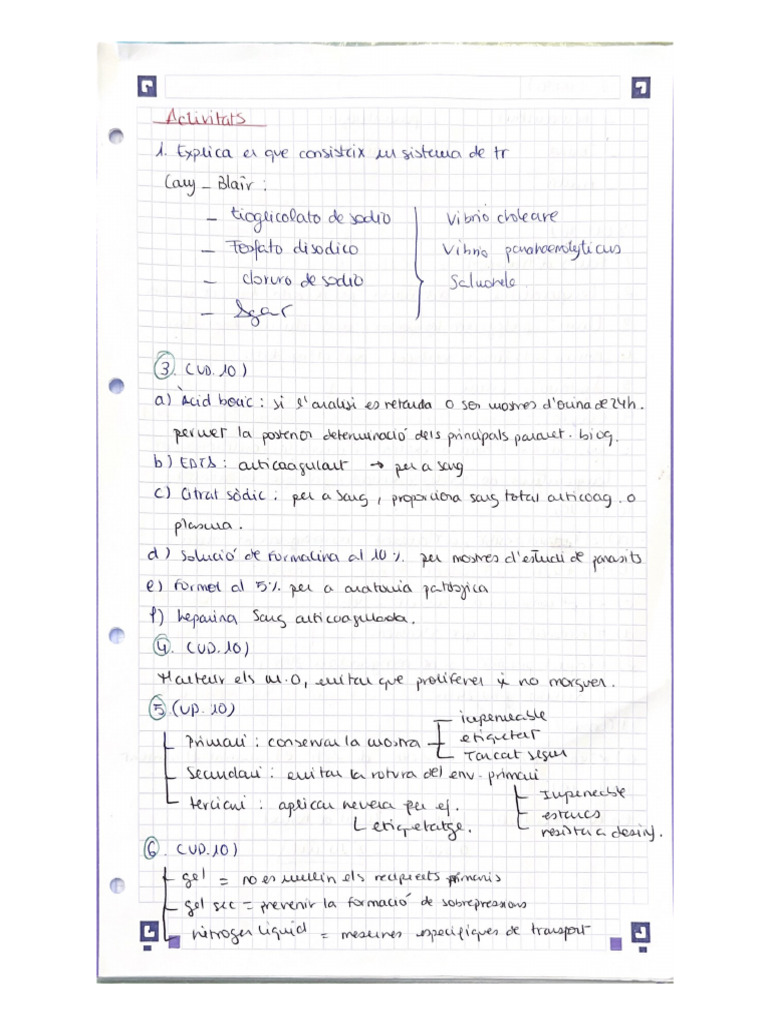 Activitats
1. Explica en que consisteix un sistema de tr
Cary - Blair:
- tioglicolato de sodio
- Fosfato disodico
- cloruro de sodio
- Agar
Vibrio choleare
Vibrio parahaemolyticus
Salmonele
3. (UD.10)
a) Àcid bòric: si s'analisi es retarda o ser mostres d'orina de 24h.
permer la posterior determinació dels principals paramet. bioq.
b) EDTA: anticoagulant → per a sang
c) Citrat sòdic: per a sang, proporciona sang total anticoag. o
plasma.
d) Solució de Formalina al 10% per mostres d'estudi de parasits
e) Formol al 5% per a anatomia patologica
f) heparina Sang anticoagulada.
4. (UD.10)
Mantenir els m.o, evitar que proliferen i no morguen.
5. (UD.10)
Primari: conservar la mostra
- impermeable
- etiquetar
- Tancat segur
Secundari: evitar la rotura del env. primari
terciari: aplicar nevera per ej.
etiquetatge.
Impermeable
estancs
resistir a desinf.
6. (UD.10)
gel = no es mullin els recipients primaris
gel sec = prevenir la formació de sobrepressions
nitrogen liquid = mesures especifiques de transport